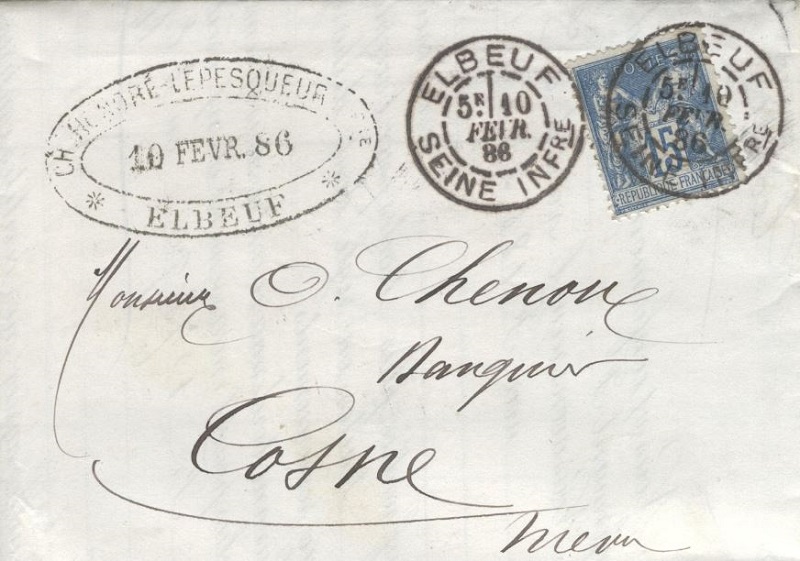 CH. HONORÉ-LEPESQUEUR
10 FEVR. 86
* ELBEUF *
ELBEUF
5E 10
FEVR.
86
SEINE INFRE
ELBEUF
5E 10
FEVR.
86
SEINE INFRE
15
RÉPUBLIQUE FRANÇAISE
Monsieur O. Chenou
Banquier
Cosne
Nievre